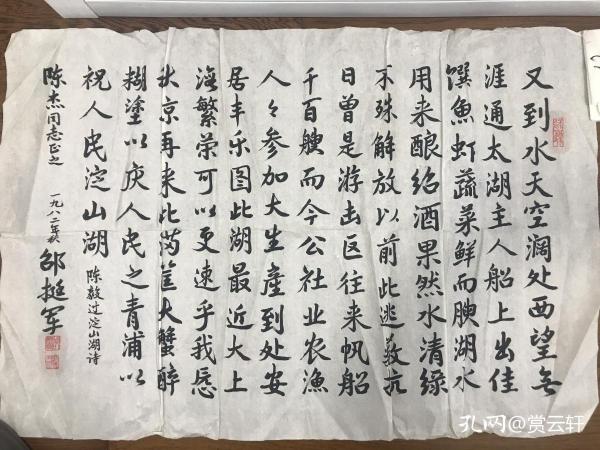 又到水天空濶处西望无
涯通太湖主人船上出佳
馔魚虾蔬菜鲜而腴湖水
用来酿绍酒果然水清绿
不殊解放以前此逃薮抗
日曾是游击区往来帆船
千百艘而今公社业农渔
人々参加大生產到处安
居丰乐图此湖最近大上
海繁荣可以更速乎我
京再来此筐大蟹醉
糊塗以庆人民之青浦以
祝人民淀山湖 陈毅过淀山湖诗
陈杰同志正之 一九八二年秋 邵挺军
孔网@赏云轩